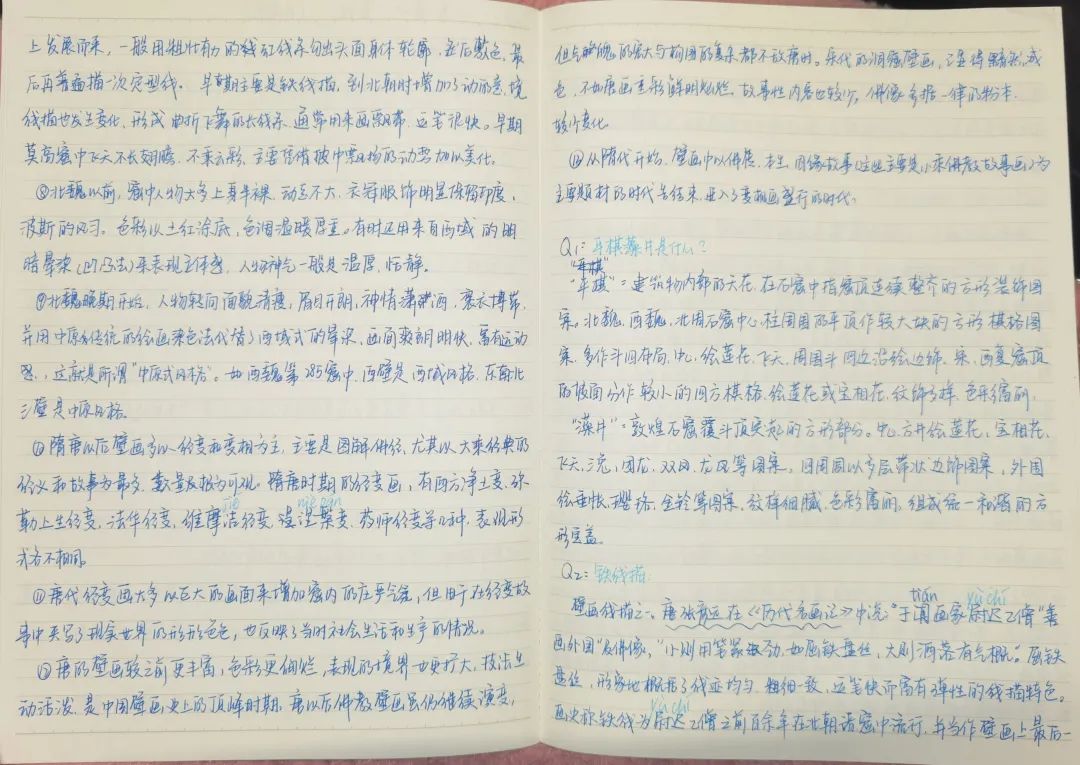 上发展而来，一般用粗壮有力的线红线条勾出头面身体轮廓，然后敷色，最
后再普遍描一次定型线。早期主要是铁线描，到北朝时增加了动的意境
线描也发生变化，形成曲折飞舞的长线条，通常用来画飘带，运笔很快。早期
莫高窟中飞天不长翅膀，不乘云彩，主要凭借披巾飘扬的动势加以美化。
⑧北魏以前，窟中人物大多上身半裸，动态不大，衣冠服饰明显保留印度、
波斯的风习。色彩以土红涂底，色调温暖厚重。有时运用来自西域的明
暗晕染（凹凸法）来表现立体感，人物神气一般是温厚，恬静。
⑨北魏晚期开始，人物转向面貌清瘦，眉目开朗，神情潇洒，褒衣博带，
并用中原传统的绘画染色法代替了西域式的晕染，画面爽朗明快，富有运动
感，这就是所谓"中原式风格"。如西魏第285窟中，西壁是西域风格，东南北
三壁是中原风格。
⑩隋唐以后壁画多以经变和变相为主，主要是图解佛经，尤其以大乘经典的
经义和故事为最多，数量及极为可观。隋唐时期的经变画，有西方净土变、弥
jié niè pán
勒上生经变，法华经变，维摩诘经变，涅槃变，药师经变等几种，表现形
式各不相同。
⑪唐代经变画大多以巨大的画面来增加窟内的庄严气氛，但由于在经变故
事中夹写了现实世界的形形色色，也反映了当时社会生活和生产的情况。
⑫唐的壁画较之前更丰富，色彩更绚烂，表现的境界也更扩大，技法生
动活泼，是中国壁画史上的顶峰时期，唐以后佛教壁画虽仍继续演变，
但气魄的宏大与构图的复杂都不敌唐时。宋代的洞窟壁画，已显得黯然减
色，不如唐画色彩鲜明灿烂，故事性内容也较少，佛像多据一律的粉本，
较少变化。
⑬从隋代开始，壁画中以佛传、本生、因缘故事（这些主要是小乘佛教故事画）为
主要题材的时代告结束，进入了变相画盛行的时代。
Q1：平棋藻井是什么？
"平棋"
"平棊"=建筑物内部的天花，在石窟中指窟顶连续整齐的方形装饰图
案。北魏、西魏、北周石窟中心柱周围的平顶作较大块的方形棋格图
案，多作斗四布局，中心绘莲花、飞天，周围斗四边沿绘边饰。宋、西夏窟顶
的坡面分作较小的四方棋格，绘莲花或宝相花，纹饰多样，色彩绮丽。
"藻井"=敦煌石窟覆斗顶突起的方形部分。中心方井绘莲花、宝相花、
飞天、三兔、团龙、双凤、龙凤等图案，四周围以多层带状边饰图案，外围
绘垂帐、璎珞、金铃等图案，纹样细腻，色彩富丽，组成统一和谐的方
形宝盖。
Q2：铁线描：
tián yù chí
壁画线描之一。唐张彦远在《历代名画记》中说："于阗画家尉迟乙僧"善
画外国"及佛像"，"小则用笔紧劲，如屈铁盘丝，大则洒落有气概"。屈铁
盘丝，形象地概括了线型均匀，粗细一致，运笔快而富有弹性的线描特色。
yù chí
画史称铁线为尉迟乙僧之前百余年在北朝诸窟中流行，并当作壁画上最后一